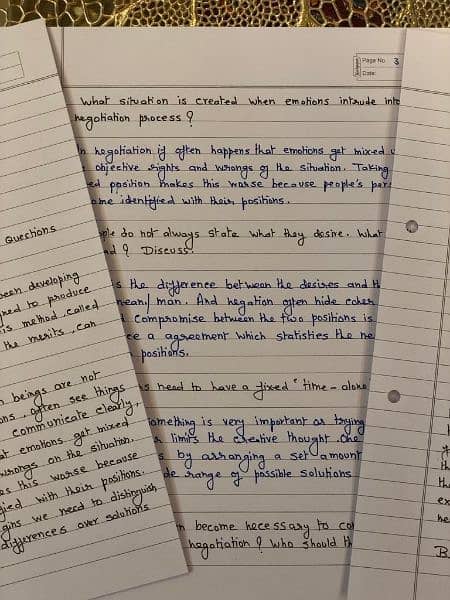 Page No. 3
Date:
What situation is created when emotions intrude into
negotiation process?
In negotiation it often happens that emotions get mixed
objective rights and wrongs of the situation. Taking
position makes this worse because people's
identified with their positions.
do not always state what they desire. What
? Discuss.
the difference between the desires and
man. And negation often hide
compromise between the two positions is
a agreement which statisties the
positions.
need to have a fixed time-
something is very important as trying
limits the creative thought. One
by arranging a set amount
range of possible solutions
become necessary to
negotiation? Who should
Questions
been developing
to produce
method, called
the merits, can
beings are not
often see things
communicate clearly,
emotions get mixed
wrongs on the situation.
this worse because
with their positions.
we need to distinguish
differences over solutions